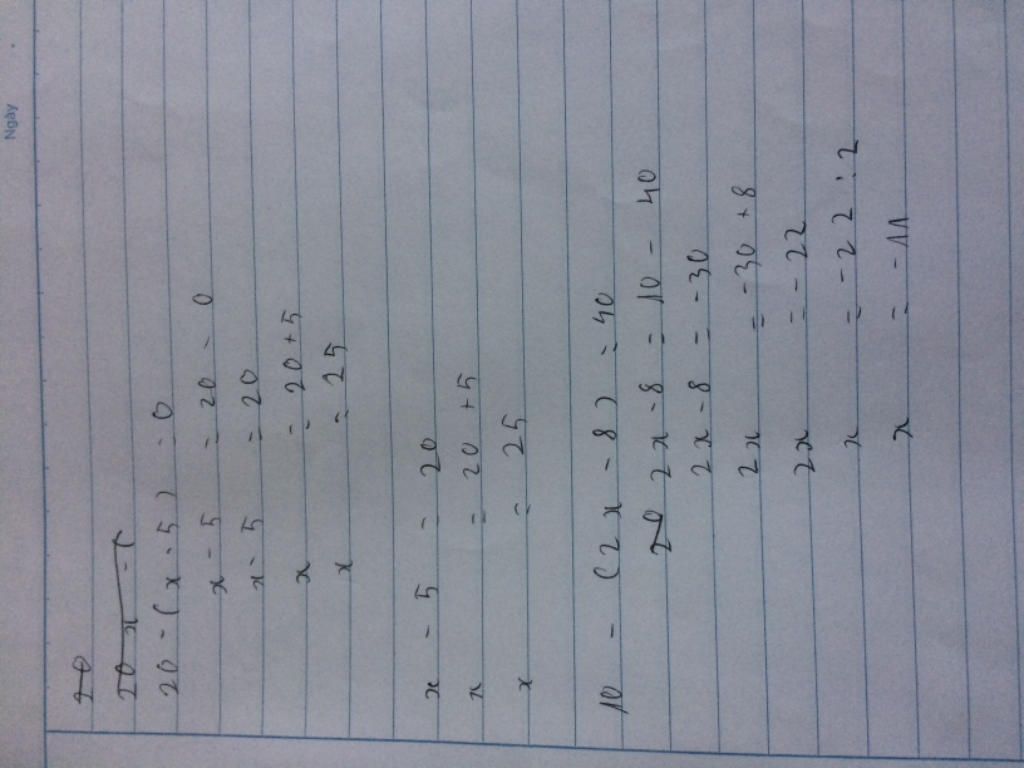 Ngày
20
20 x - (
20 - (x - 5) = 0
x - 5 = 20 - 0
x - 5 = 20
x = 20 + 5
x = 25
x - 5 = 20
x = 20 + 5
x = 25
10 - (2x - 8) = 40
2x - 8 = 10 - 40
2x - 8 = -30
2x = -30 + 8
2x = -22
x = -22 : 2
x = -11